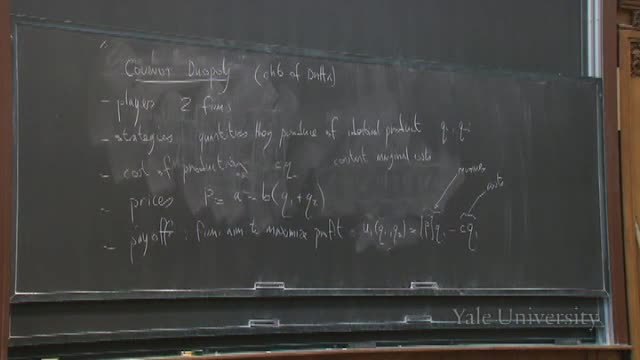 Cournot Duopoly (ch6 of Dutta)
- players 2 firms
- strategies quantities they produce of identical product q1, q2
- cost of production cq constant marginal costs
- prices p = a - b(q1 + q2)
revenues
costs
- payoff : firms aim to maximize profit u1(q1, q2) = [p]q1 - cq1
Yale University